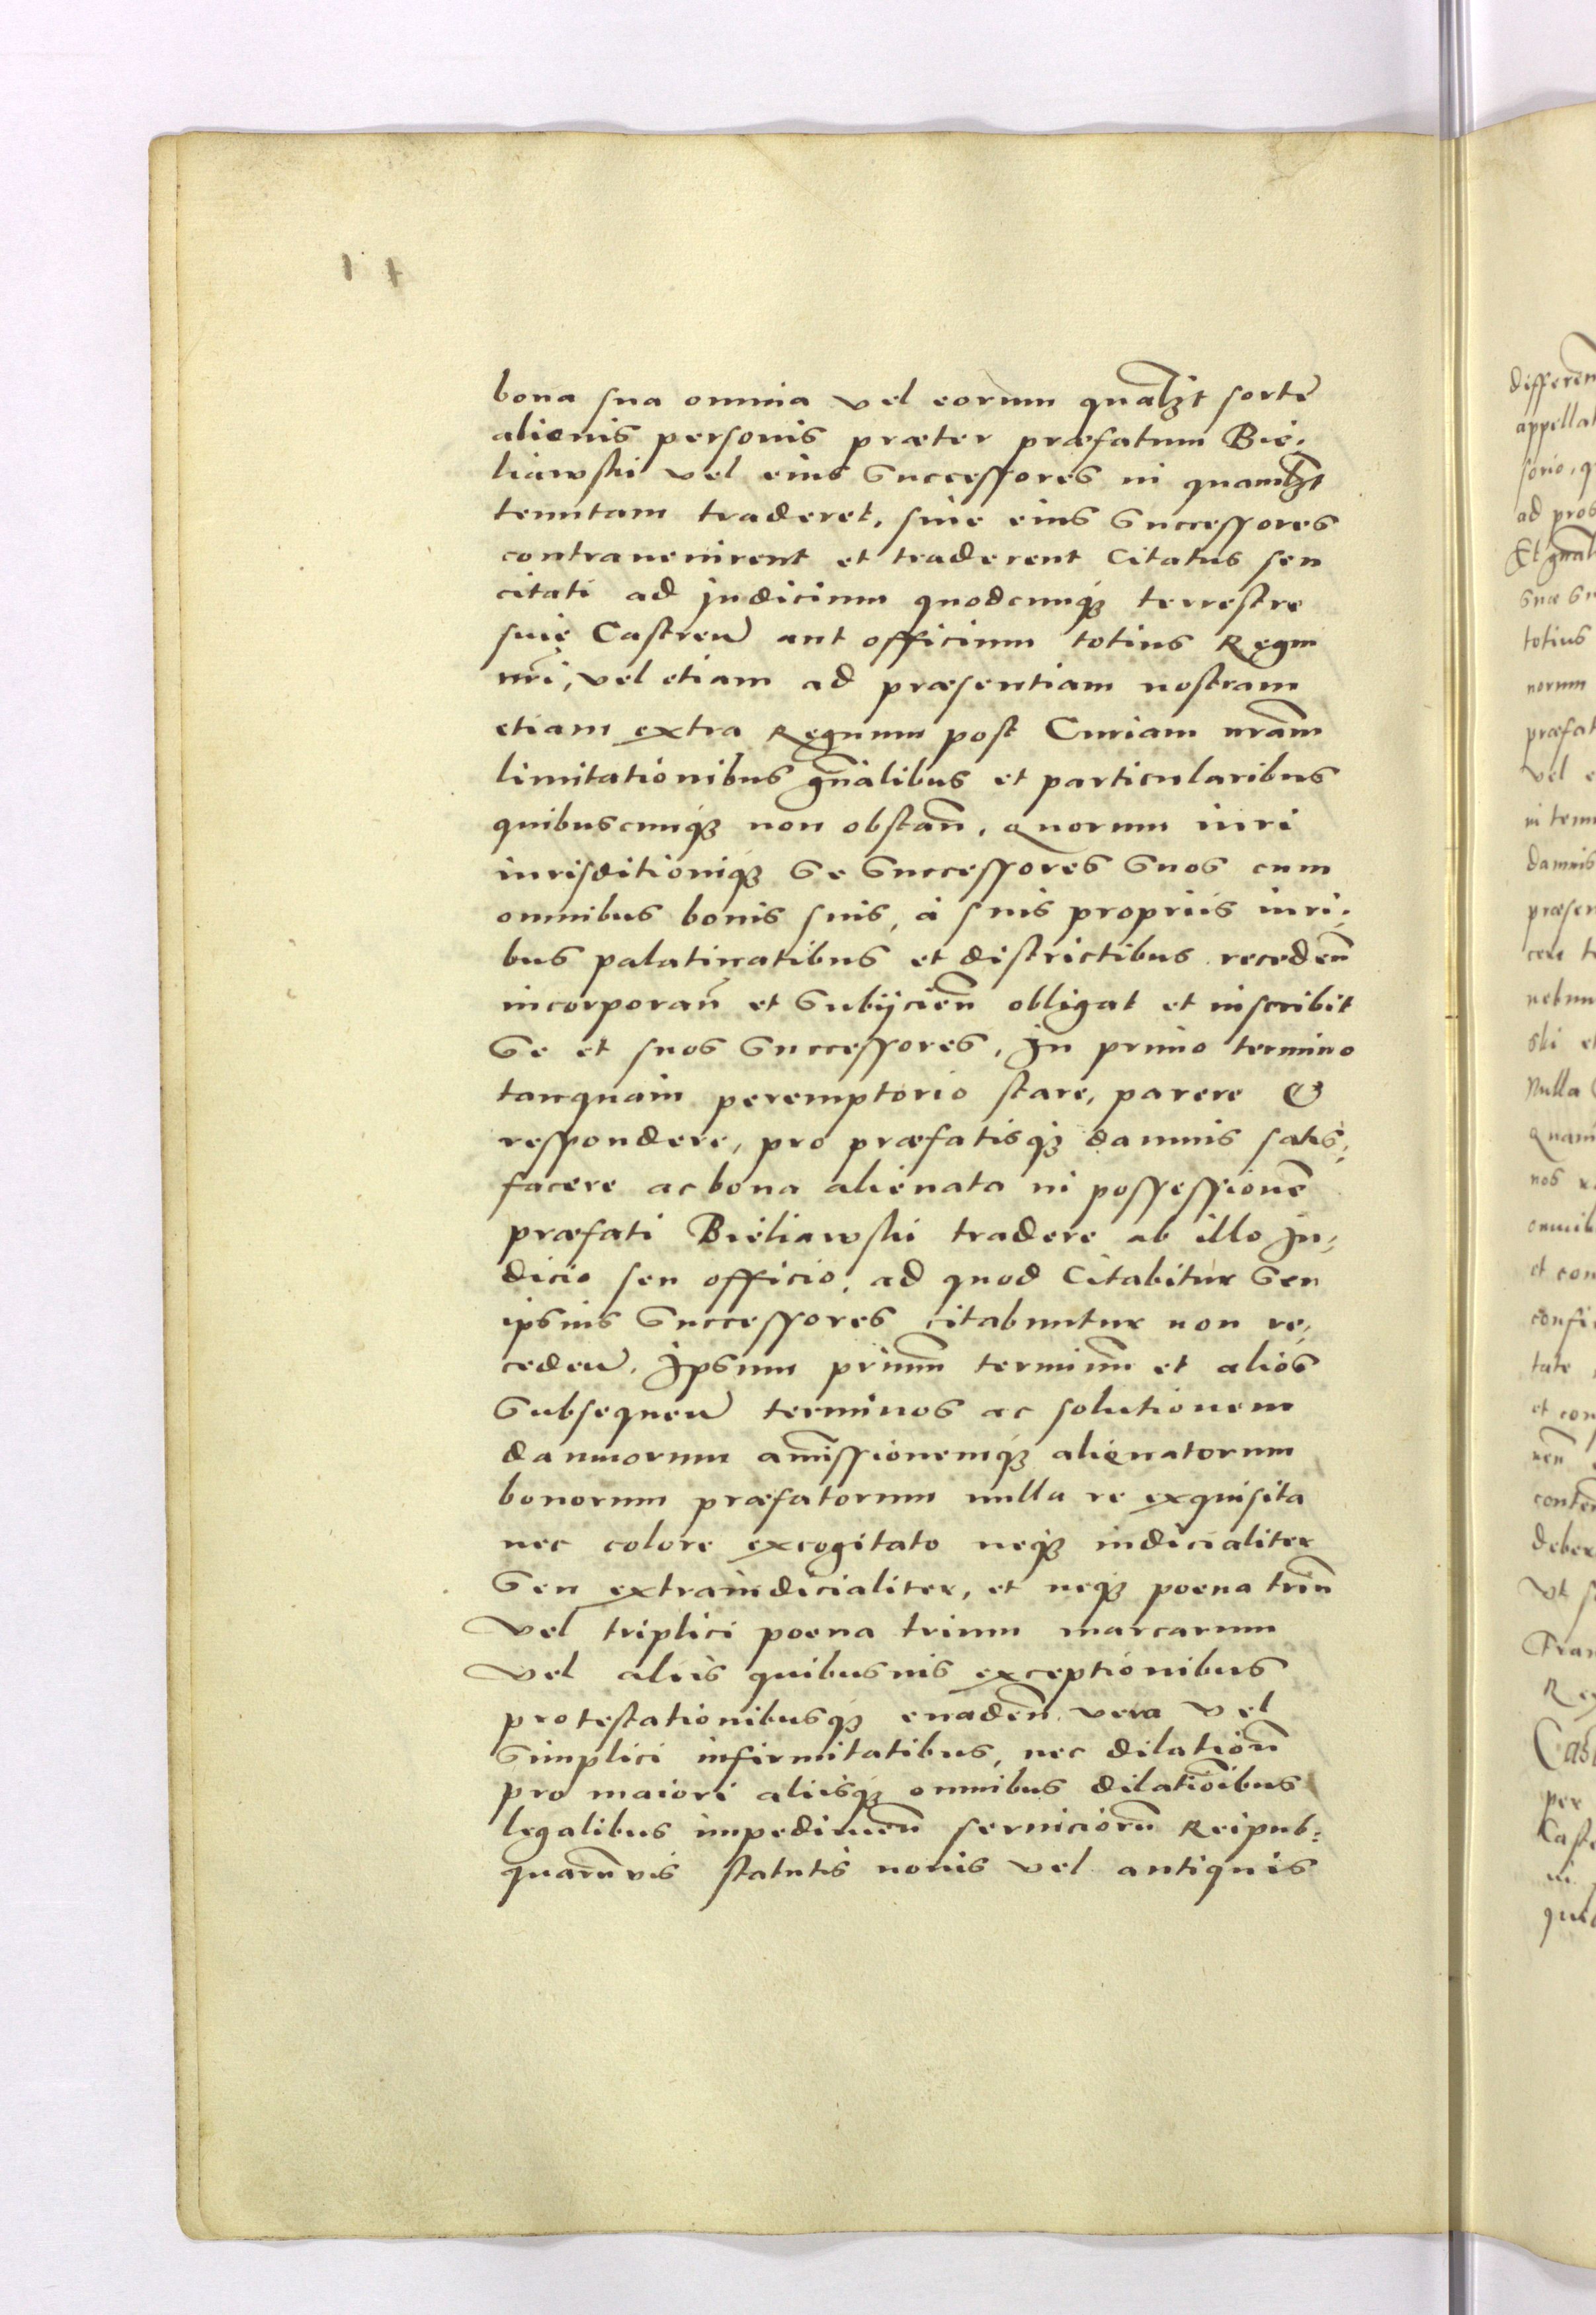 bona sua omnia vel eorum qualzt sorte
alienis personis præter præfatum Bie-
liawski vel eius Successores in quamlzt
tenutam traderet, siue eius Successores
contrauenirent et traderent Citatus seu
citati ad Judicium quodcunqꝫ terrestre
siue Castren̄ aut officium totius Regni
nr̄i, vel etiam ad præsentiam nostram
etiam extra Regnum post Curiam nr̄am
limitationibus gn̄alibus et particularibus
quibuscunqꝫ non obstan̄, quorum iuri
iurisditioniqꝫ Se Successores Suos cum
omnibus bonis suis, à suis propriis iuri-
bus palatinatibus et districtibus receden̄
incorporan̄ et Subijcien̄ obligat et inscribit
Se et suos Successores, In primo termino
tanquam peremptorio stare, parere &
respondere, pro præfatisqꝫ damnis satis-
facere ac bona alienata in possessionē
præfati Bieliawski tradere ab illo Ju-
dicio seu officio, ad quod Citabitur Seu
ipsius Successores citabuntur non re-
ceden̄. Ipsum primū terminū et alios
Subsequen̄ terminos ac solutionem
damnorum amissionemqꝫ alienatorum
bonorum præfatorum nulla re exquisita
nec colore excogitato neqꝫ iudicialiter
Seu extraiudicialiter, et neqꝫ poena triū
vel triplici poena trium marcarum
vel aliis quibusuis exceptionibus
protestationibusqꝫ euaden̄ vera vel
Simplici infirmitatibus, nec dilation̄
pro maiori aliisqꝫ omnibus dilatiōibus
legalibus impedimen̄ seruiciorū Reipub:
quarūvis statutis nouis vel antiquis